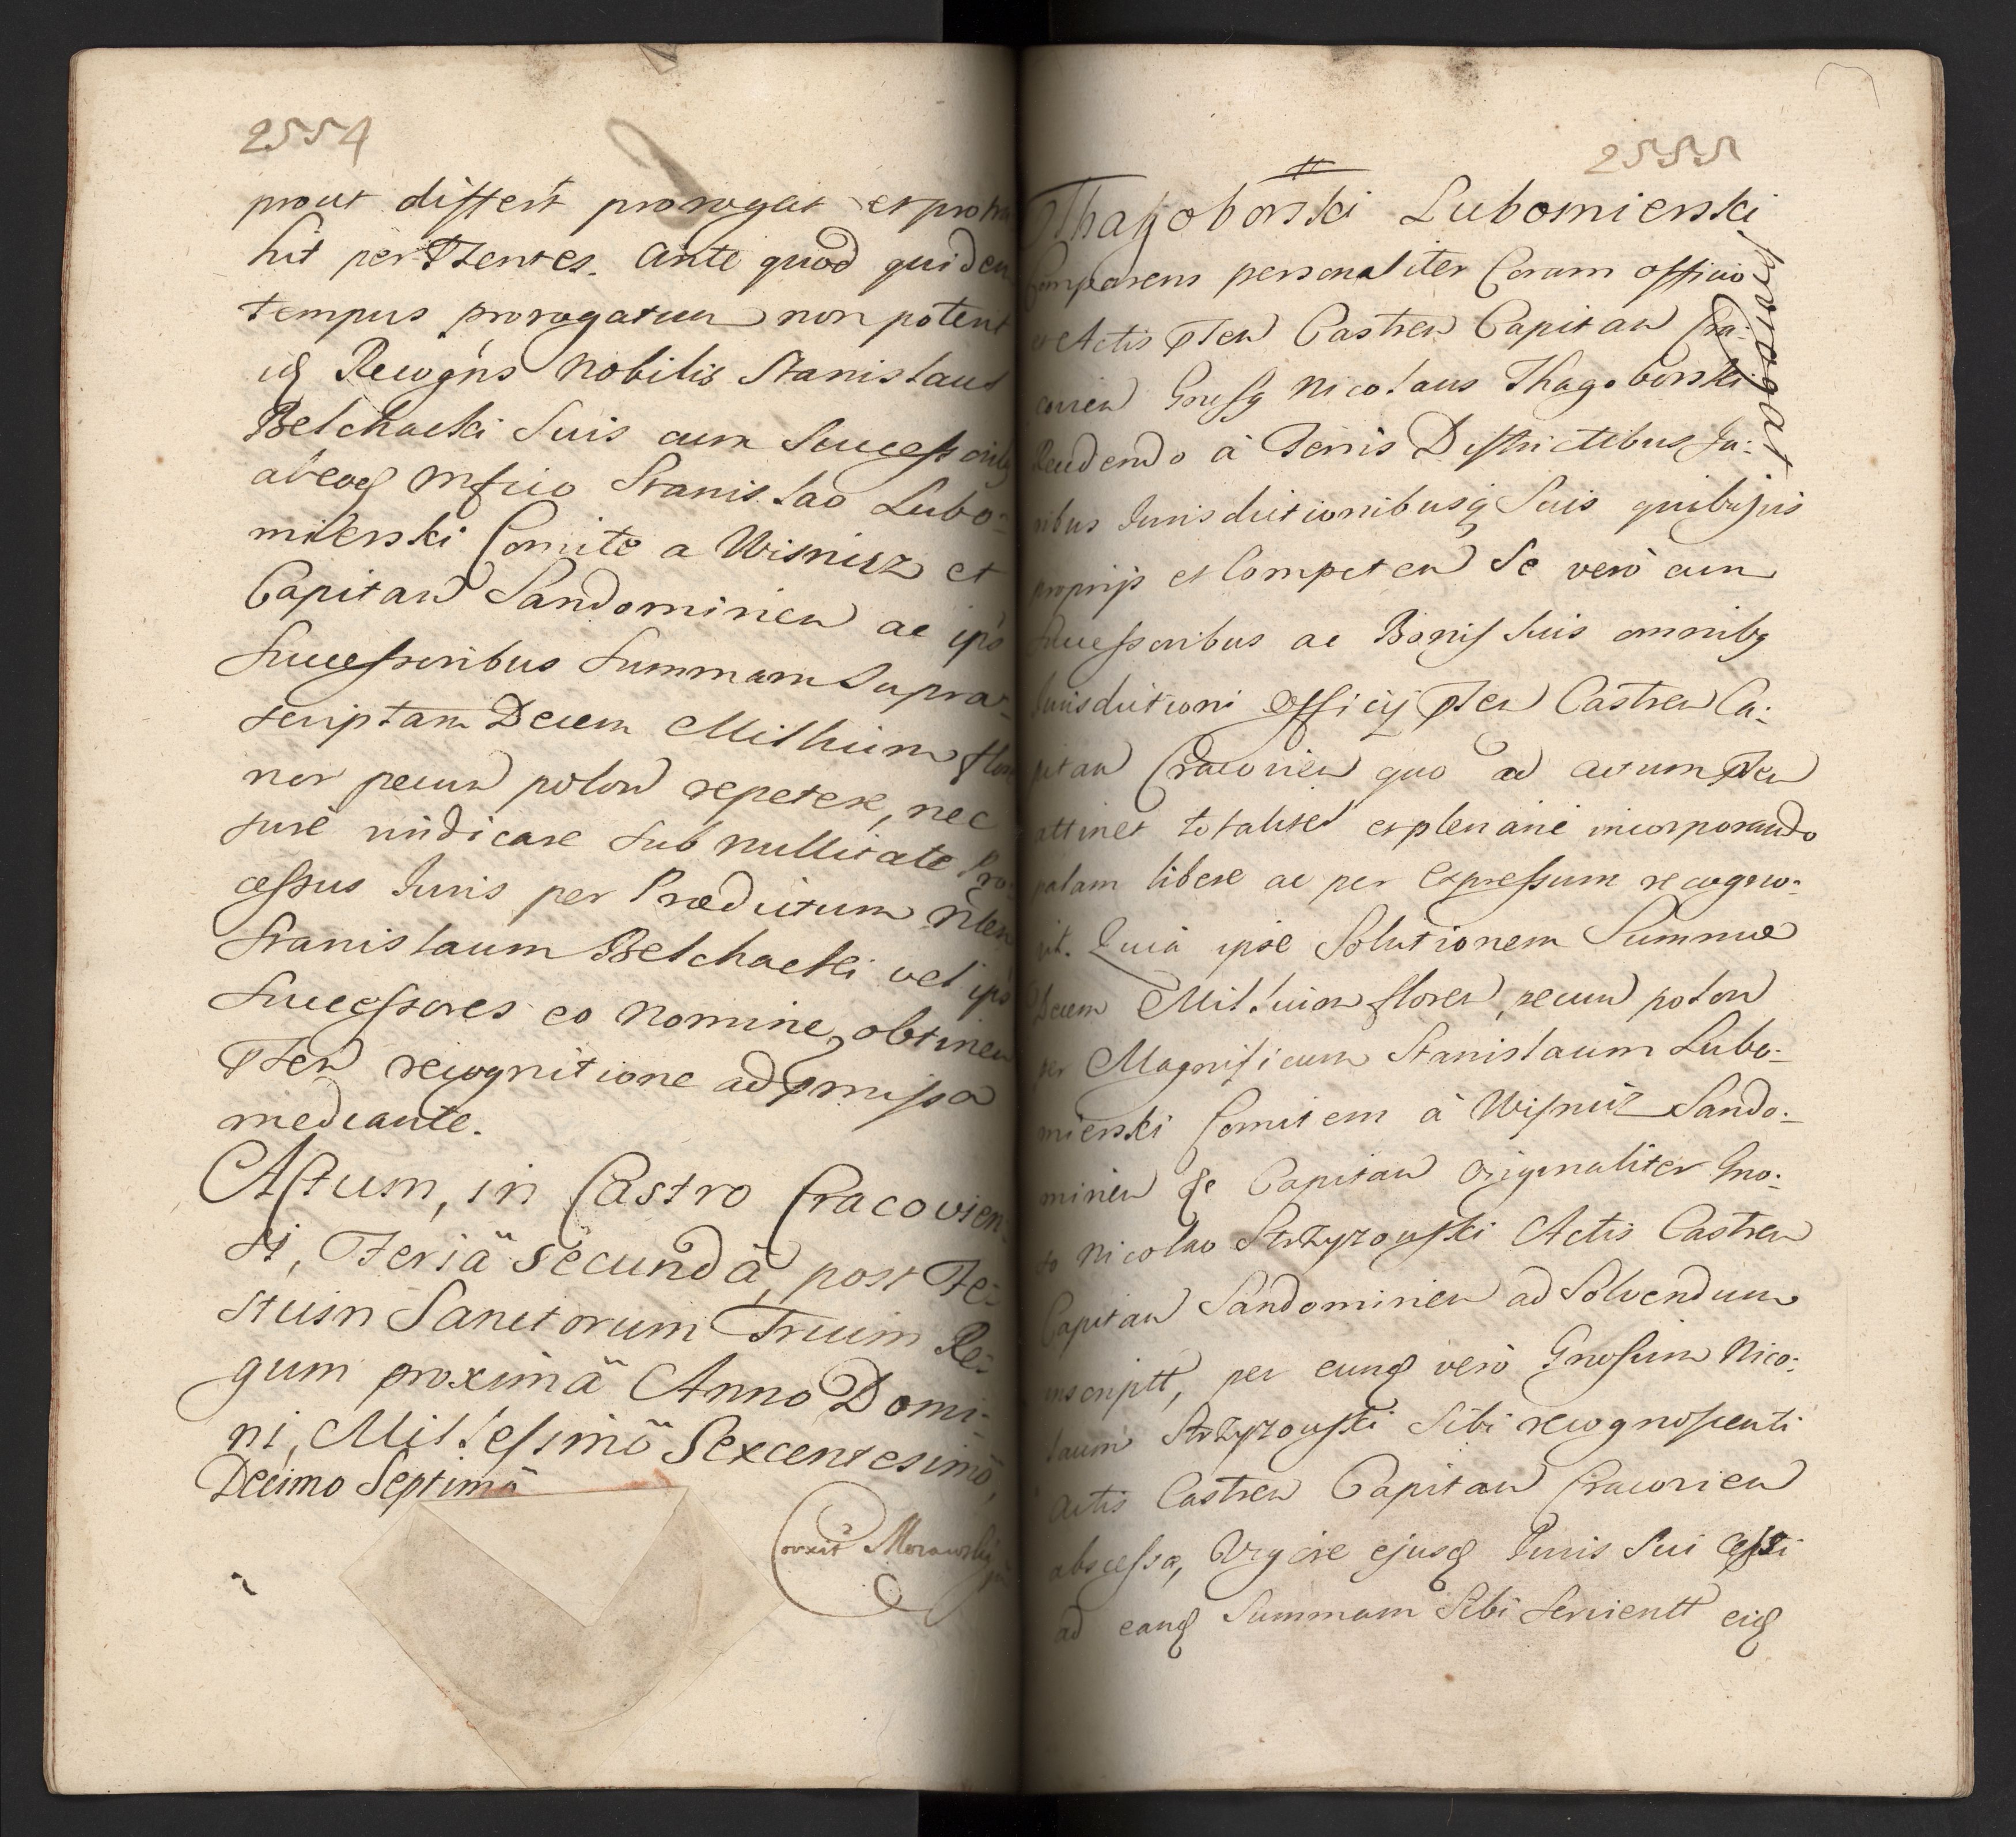 2554
prout differt prorogat et protra
hit per Pntes. Ante quod quidem
tempus prorogatum non potent
id Recogns Nobilis Stanislaus
Belchacki Suis cum Successoribq
ab eod Mfico Stanislao Lubo-
mierski Comite a Wisnicz et
Capitan Sandomirien ac ips
Successoribus Summam Supra-
scriptam Decem Millium flore
nor pecun polon repetere, nec
jure vindicare sub nullitate Pro-
cessus Juris per Prædictum Nlem
Stanislaum Belchacki vel ips
Successores eo nomine obtinen
Pnten recognitione ad præmissa
mediante.
Actum, in Castro Cracovien-
si, Feria secunda, post Fe-
stum Sanctorum Trium Re-
gum proxima Anno Domi-
ni, Millesimo Sexcentesimo,
Decimo Septimo
Corrxit Morawski
2555
Thagoborski Lubomierski
prorogat
Comparens personaliter Coram officio
et Actis Pnten Castren Capitan Cra-
covien Gnrsq Nicolaus Thagoborski
Recedendo à Terris Districtibus Ju-
ribus Jurisdictionibusq Suis quibusvis
proprijs et Competen Se vero cum
Successoribus ac Bonis Suis omnibq
Jurisdictioni officij Pnten Castren Ca-
pitan Cracovien quo ad actum Pnten
attinet totaliter et plenarie incorporando
palam libere ac per expressum recogno-
vit. Quia ipse Solutionem Summæ
Decem Millium floren, pecun polon
per Magnificum Stanislaum Lubo-
mierski Comitem à Wisnicz Sando-
mirien &c Capitan originaliter Gno-
so Nicolao Strzyzowski Actis Castren
Capitan Sandomirien ad Solvendum
inscriptt, per eund vero Gnosum Nico-
laum Strzyzowski Sibi recognoscenti
Actis Castren Capitan Cracovien
abscessa, Vigore ejusd Juris Sui Cessi
ad eand Summam Sibi servientt eid